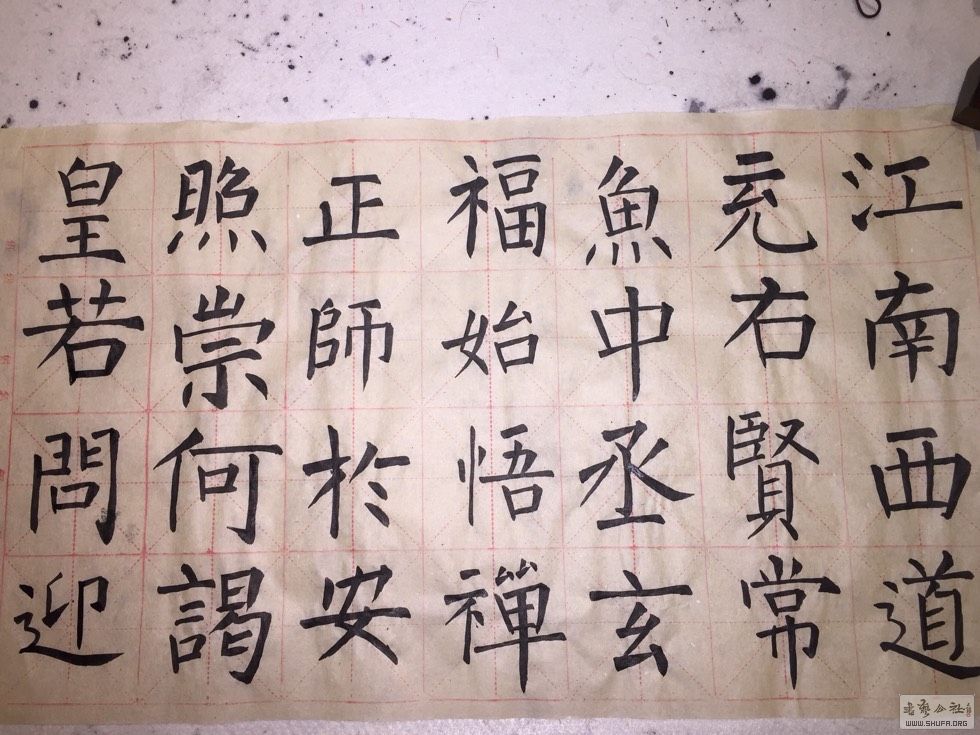 江南西道
充右賢常
魚中丞玄
福始悟禪
正師於安
照崇何謁
皇若問迎
WWW.SHUFA.ORG